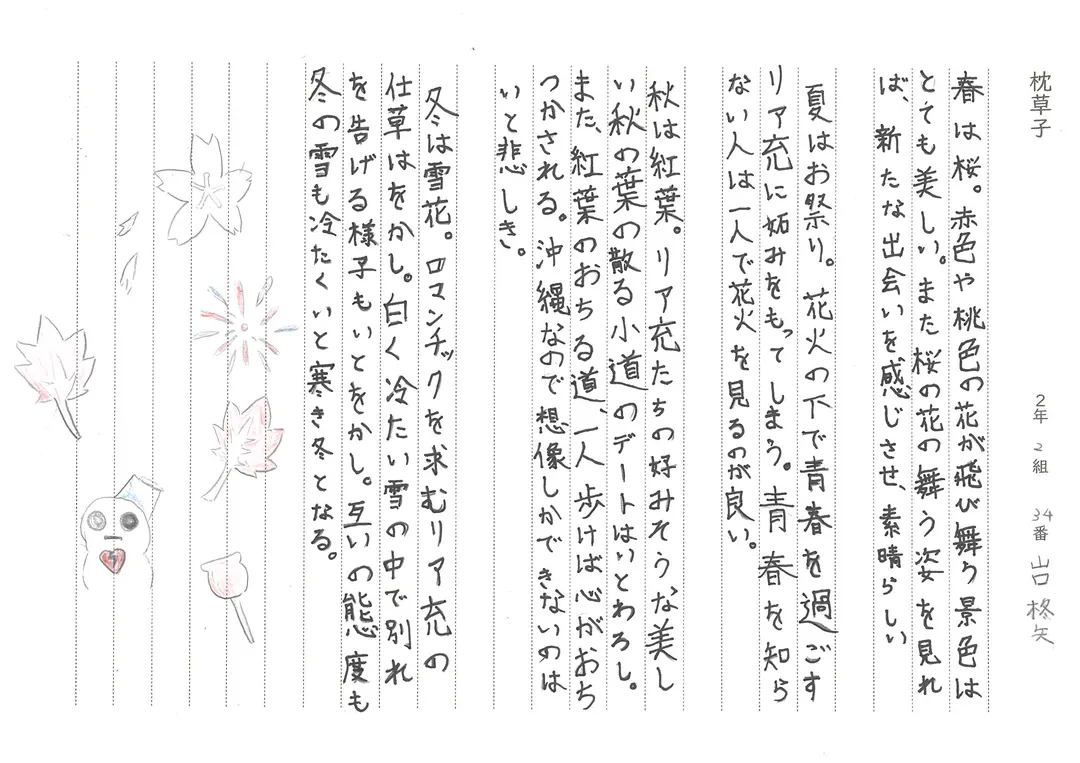 枕草子
2年 2組 34番 山口 柊矢
春は桜。赤色や桃色の花が飛び舞う景色は
とても美しい。また桜の花の舞う姿を見れ
ば、新たな出会いを感じさせ、素晴らしい
夏はお祭り。花火の下で青春を過ごす
リア充に妬みをもってしまう。青春を知ら
ない人は一人で花火を見るのが良い。
秋は紅葉。リア充たちの好みそうな美し
い秋の葉の散る小道のデートはいとわろし。
また、紅葉のおちる道、一人歩けば心がおち
つかされる。沖縄なので想像しかできないのは
いと悲しき。
冬は雪花。ロマンチックを求むリア充の
仕草はをかし。白く冷たい雪の中で別れ
を告げる様子もいとをかし。互いの態度も
冬の雪も冷たくいと寒き冬となる。